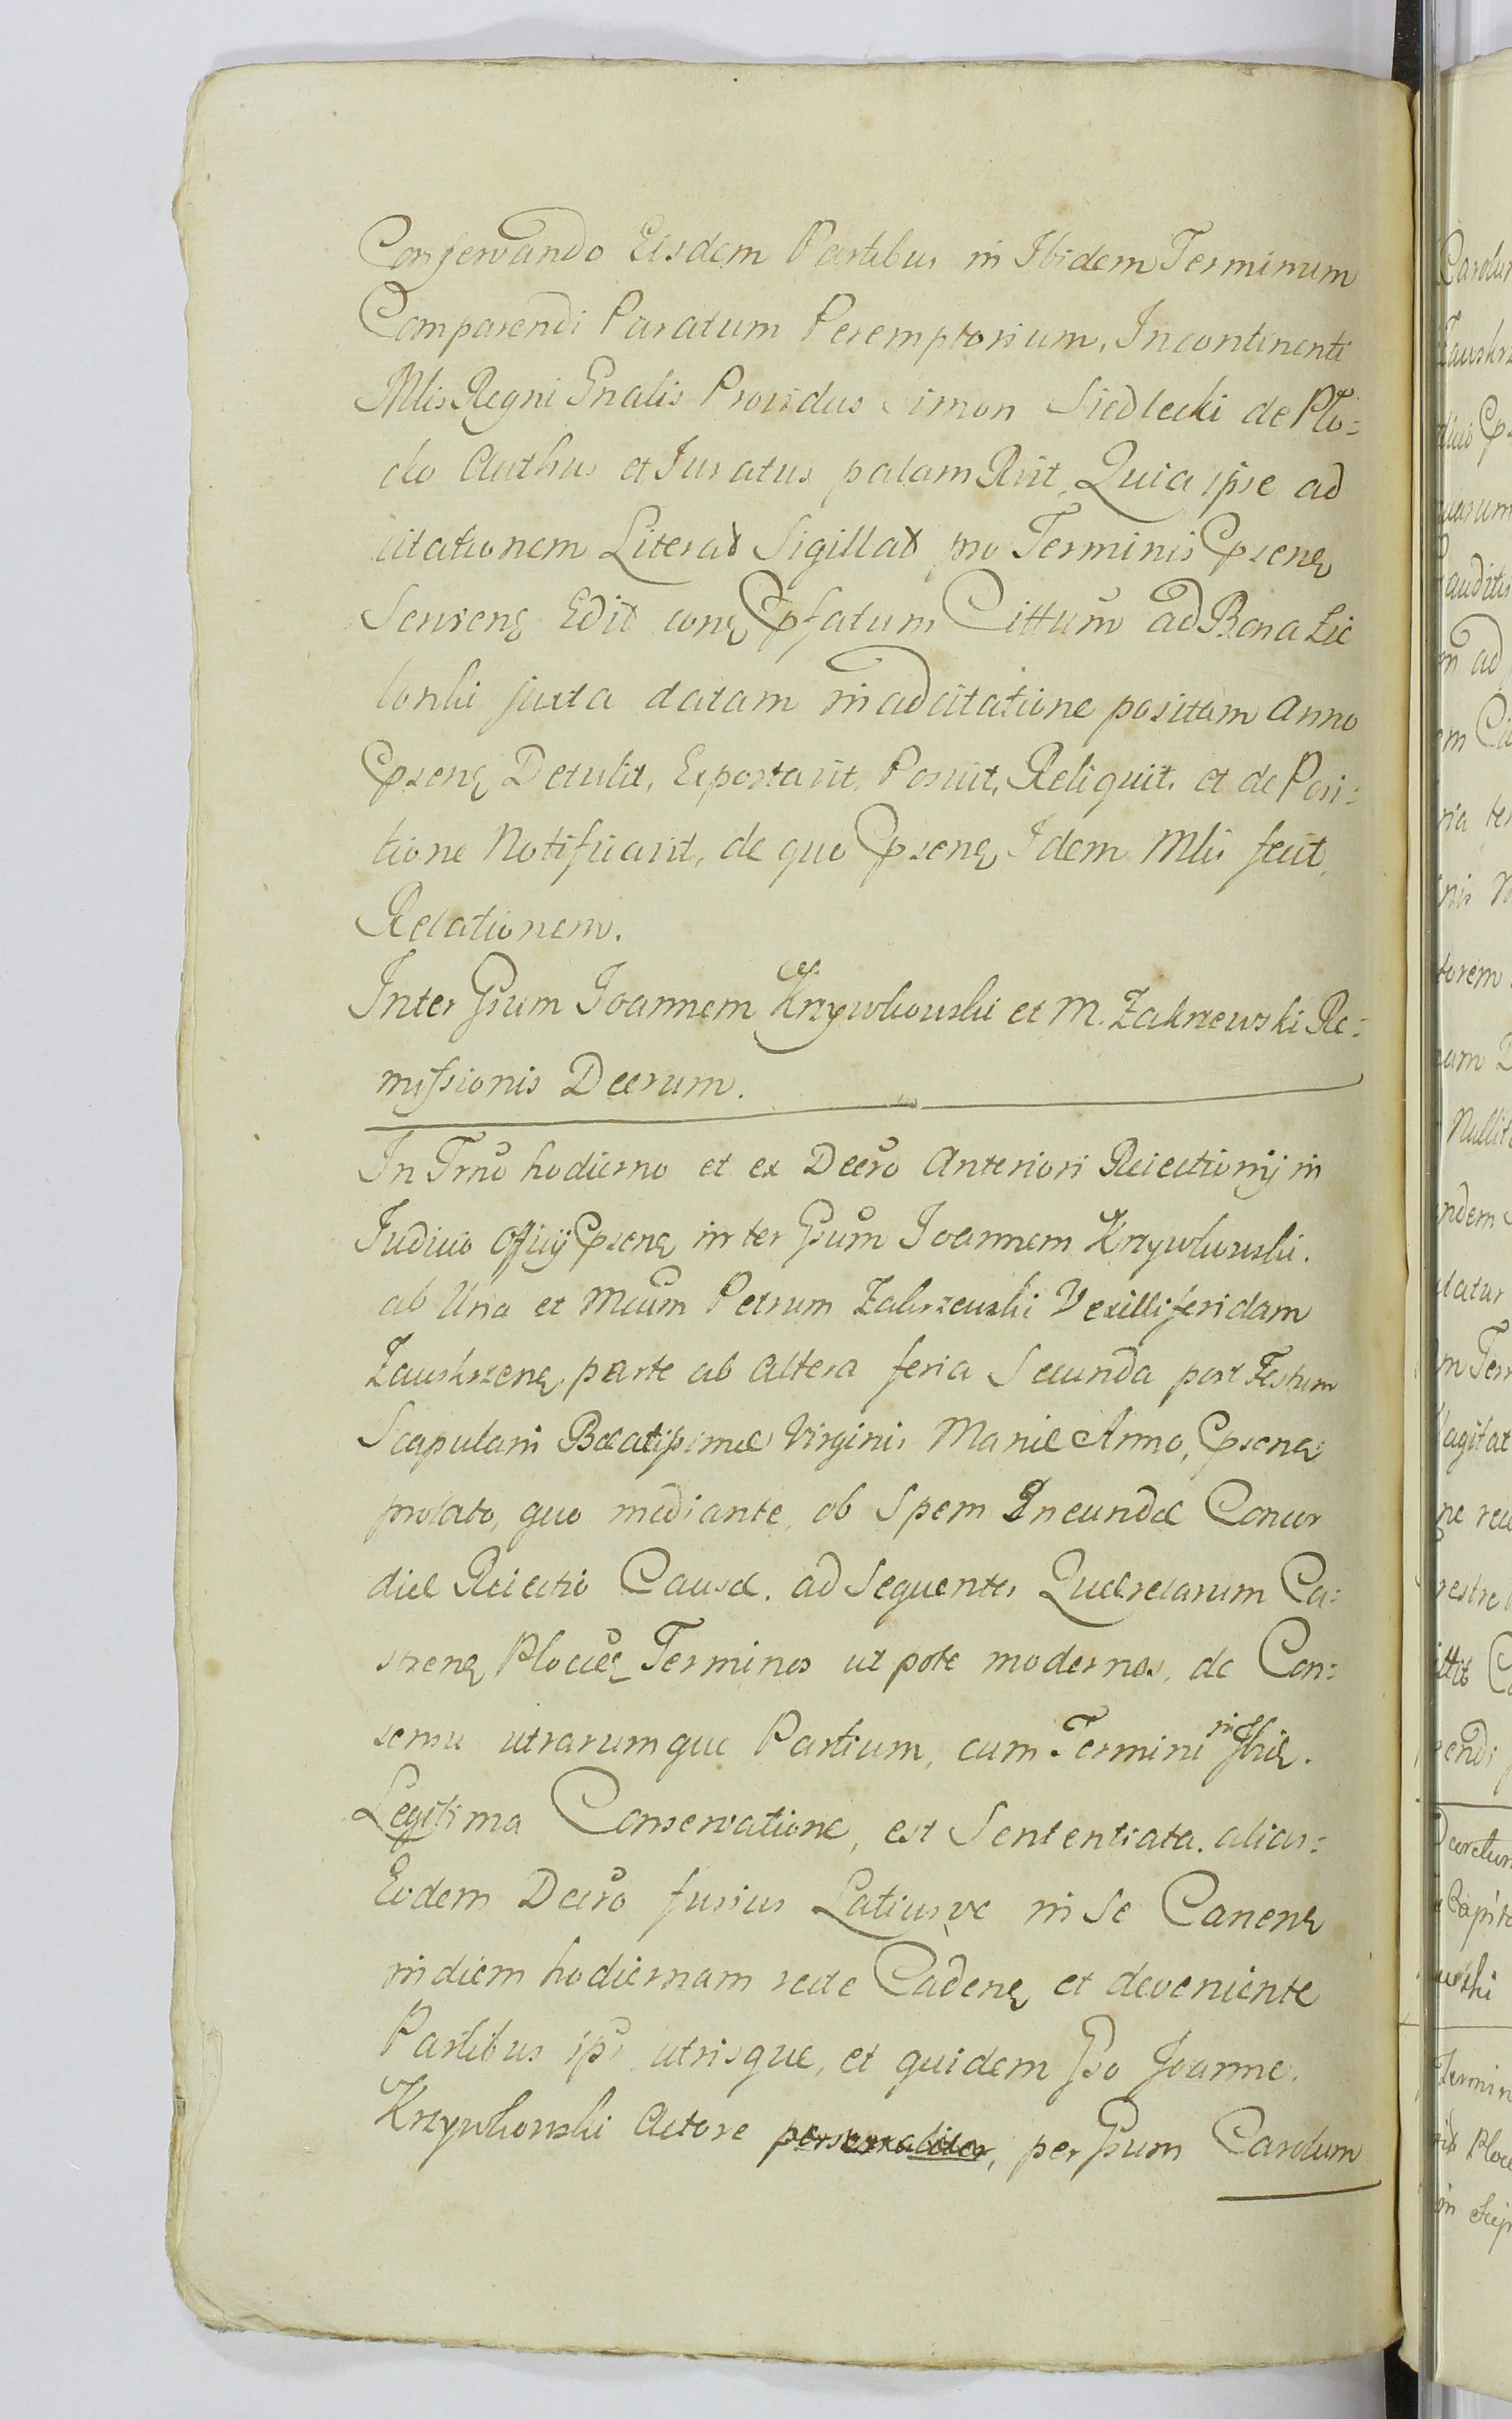 Conservando Eisdem Partibus in Ibidem Terminum
Comparendi Paratum Peremptorium, Incontinenti
Mlis Regni Gnalis Providus Simon Siedlecki de Plo=
cko Authus et Juratus palam Rlit, Quia ipse ad
citationem Literat Sigillat pro Terminis Pseng
Serieng Edit cong Pfatum Cittum ad Bona Zie
lonki juxta datam in adcitatione positam Anno
Pseng Detulit, Exportavit, Posuit, Reliquit, et de Posi=
tione Notificavit, de quo Pseng Idem Mlis fecit
Relationem.
Inter Gsum Joannem Krzywkowski et M. Zakrzewski Re=
missionis Decrum.
In Trno hodierno et ex Decro Anteriori Reiectionij in
Judicio Officij Pseng inter Gsum Joannem Krzywkowski.
ab Una et Mcum Petrum Zakrzewski Vexilliferidam
Zawskrzeng parte ab altera feria Secunda post Festum
Scapularii Beatissimae Virginis Mariae Anno, Pseng
prolato, quo mediante, ob Spem Ineundae Concor
diae Reiectio Causae, ad Sequentes Quaerelarum Ca=
streng Plocceg Terminos utpote modernos, de Con=
sensu utrarumque Partium, cum Termini in Ibid.
Legitima Conservatione, est Sententiata. alias=
Eodem Decro fusius Latiusve in Se Caneng
in diem hodiernam recte Cadeng et deveniente
Partibus ips utrisque, et quidem Gso Joanne.
Krzywkowski Actore personaliter, per Gsum Carolum